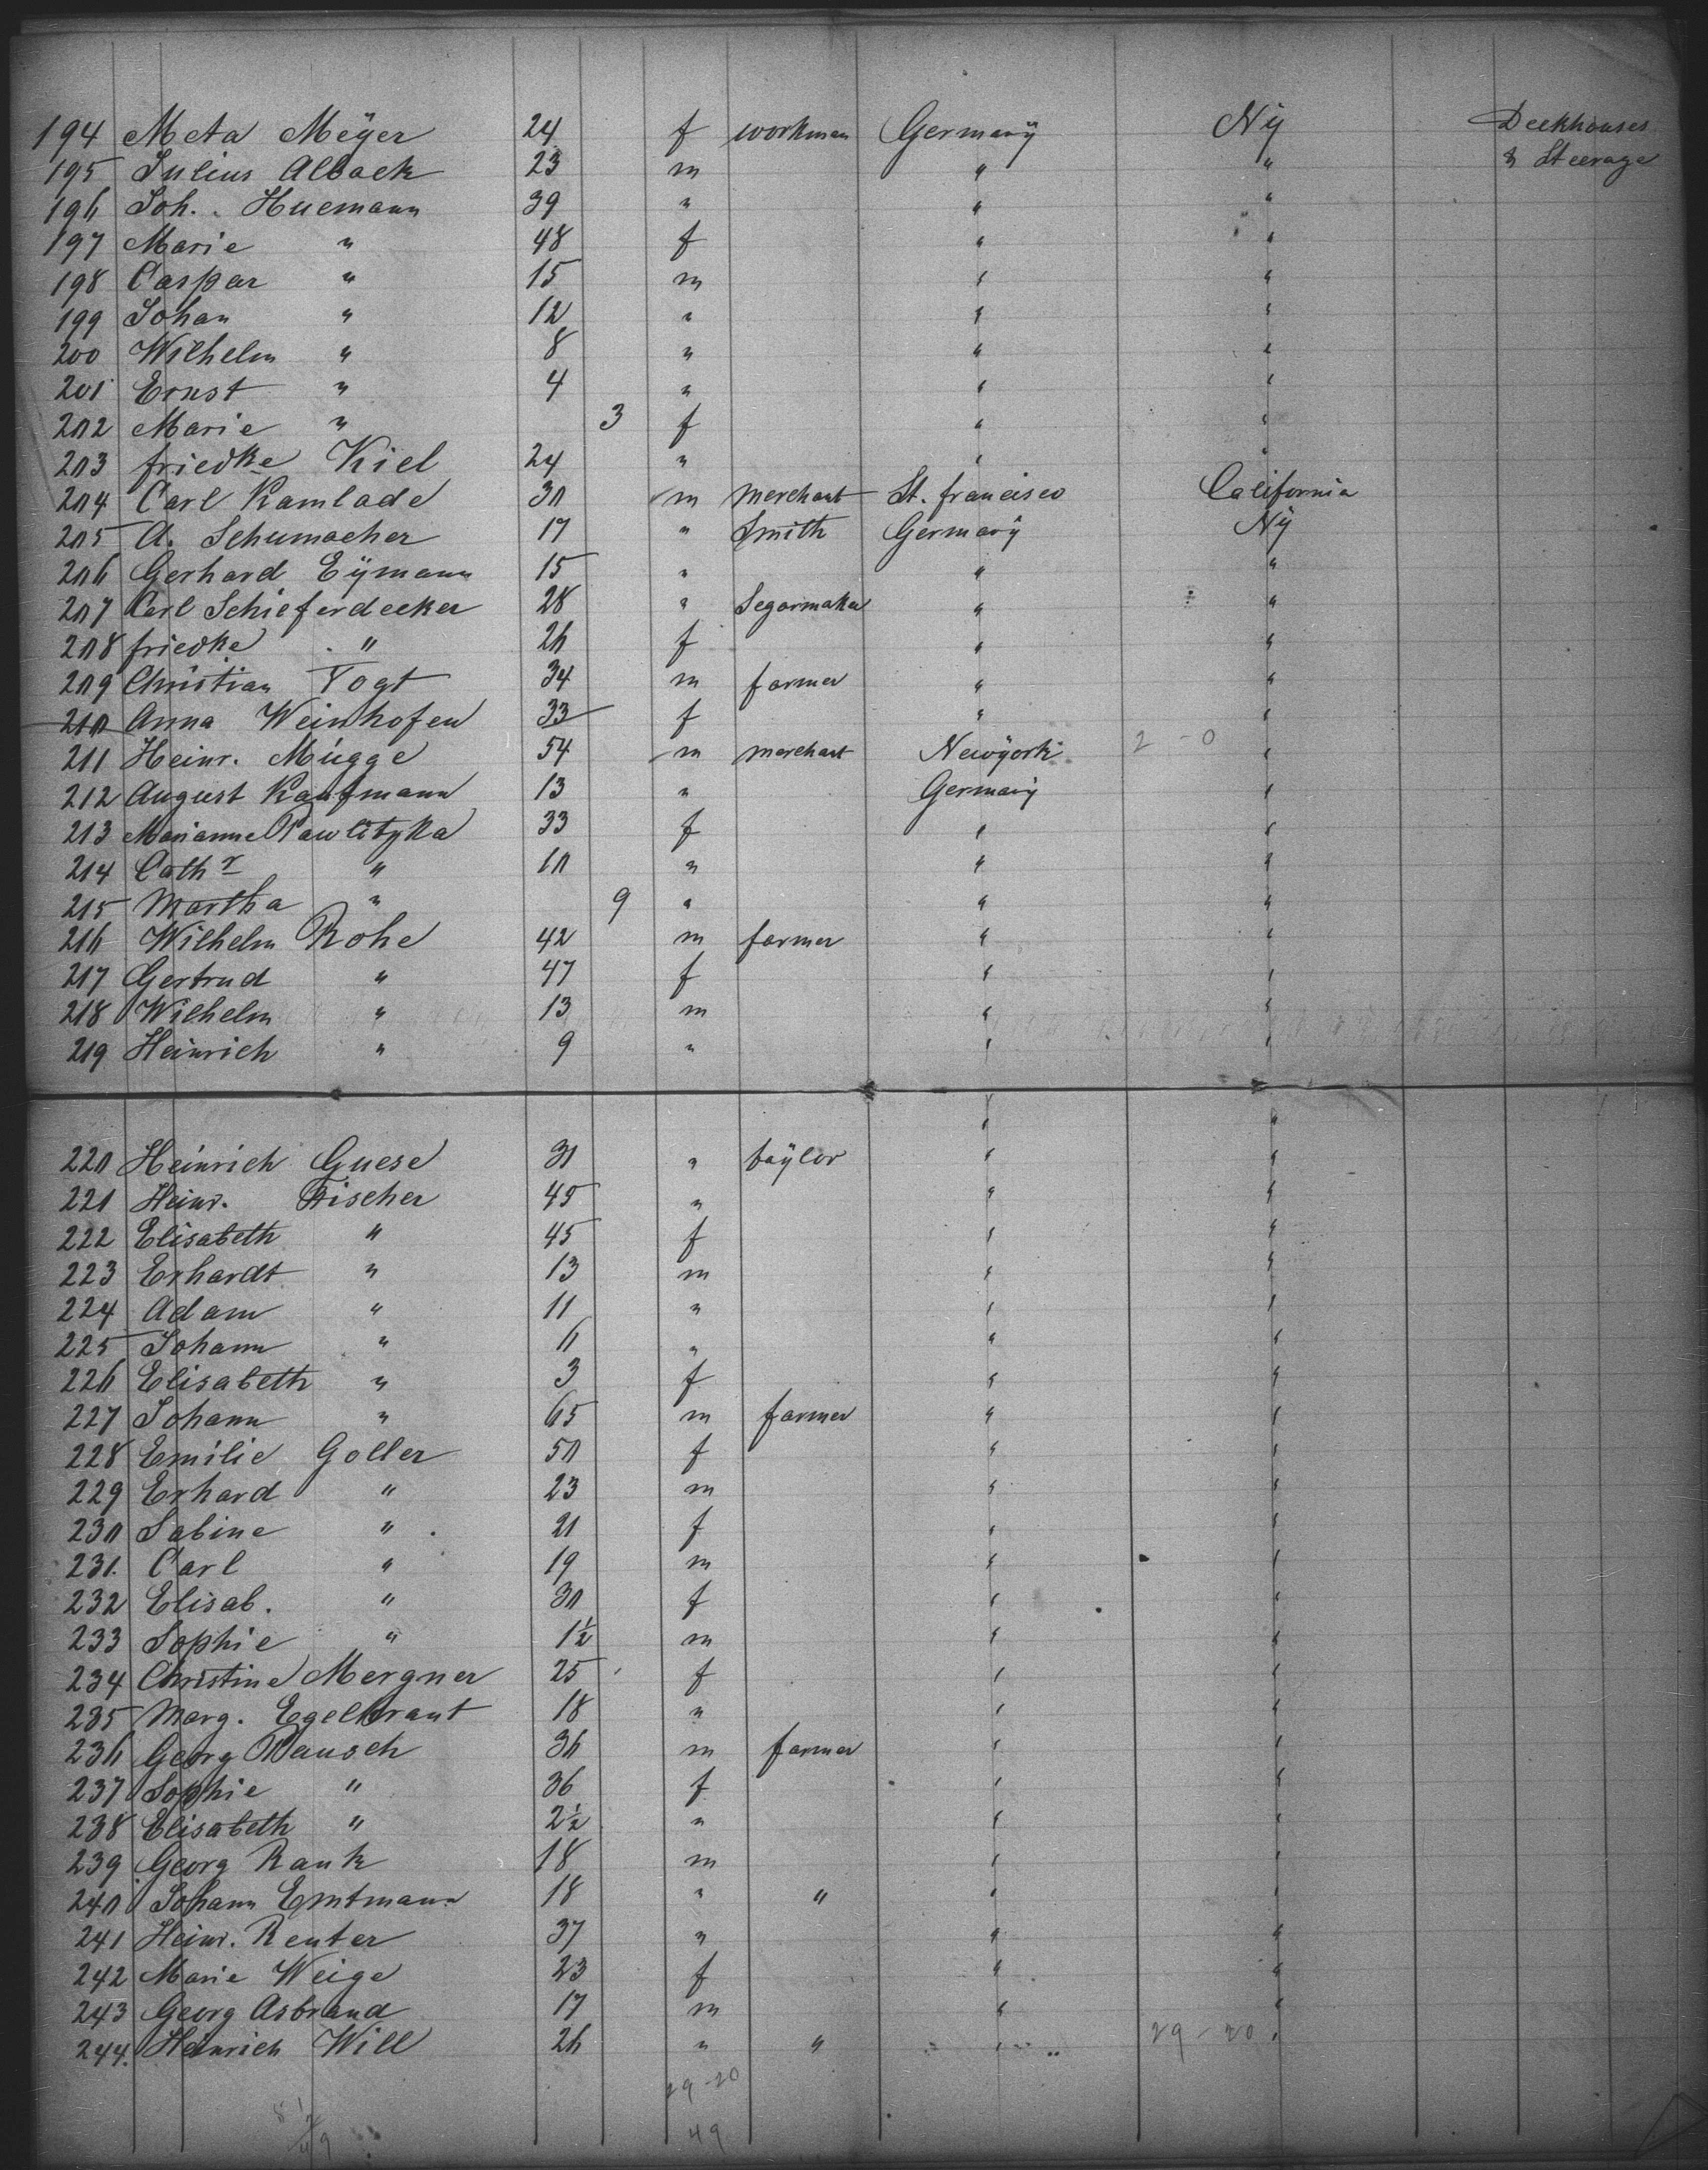 194 Meta Meÿer 24 f workman Germanÿ Nÿ Deckhouses
195 Julius Alback 23 m " " & Steerage
196 Joh. Huemann 39 " " "
197 Marie " 48 f " "
198 Caspar " 15 m " "
199 Johan " 12 " " "
200 Wilhelm " 8 " " "
201 Ernst " 4 " " "
202 Marie " 3 f " "
203 friedke Kiel 24 " " "
204 Carl Kamlade 30 m merchant St. francisco California
205 A. Schumacher 17 " Smith Germanÿ Nÿ
206 Gerhard Eÿmann 15 " " "
207 Carl Schieferdecker 28 " Segarmaker " "
208 friedke " 26 f " "
209 Christian Vogt 34 m farmer " "
210 Anna Weinhofen 33 f " "
211 Heinr. Mügge 54 m merchant Newÿork 2 - 0 "
212 August Kaufmann 13 " Germanÿ "
213 Marianne Pawlitzka 33 f " "
214 Cathr " 10 " " "
215 Martha " 9 " " "
216 Wilhelm Rohe 42 m farmer " "
217 Gertrud " 47 f " "
218 Wilhelm " 13 m " "
219 Heinrich " 9 " " "
" "
220 Heinrich Guese 31 " taÿlor " "
221 Heinr. Fischer 45 " " "
222 Elisabeth " 45 f " "
223 Erhardt " 13 m " "
224 Adam " 11 " " "
225 Johann " 6 " " "
226 Elisabeth " 3 f " "
227 Johann " 65 m farmer " "
228 Emilie Goller 50 f " "
229 Erhard " 23 m " "
230 Sabine " 21 f " "
231. Carl " 19 m " "
232 Elisab. " 30 f " "
233 Sophie " 1½ m " "
234 Christine Mergner 25 f " "
235 Marg. Egelkraut 18 " " "
236 Georg Rausch 36 m farmer " "
237 Sophie " 36 f " "
238 Elisabeth " 2½ " " "
239 Georg Rank 18 m " "
240 Johann Emtmann 18 " " " "
241 Heinr. Reuter 37 " " "
242 Marie Weige 23 f " "
243 Georg Asbrand 17 m " "
244. Heinrich Will 26 " " " 29 - 20 "
29-20
49